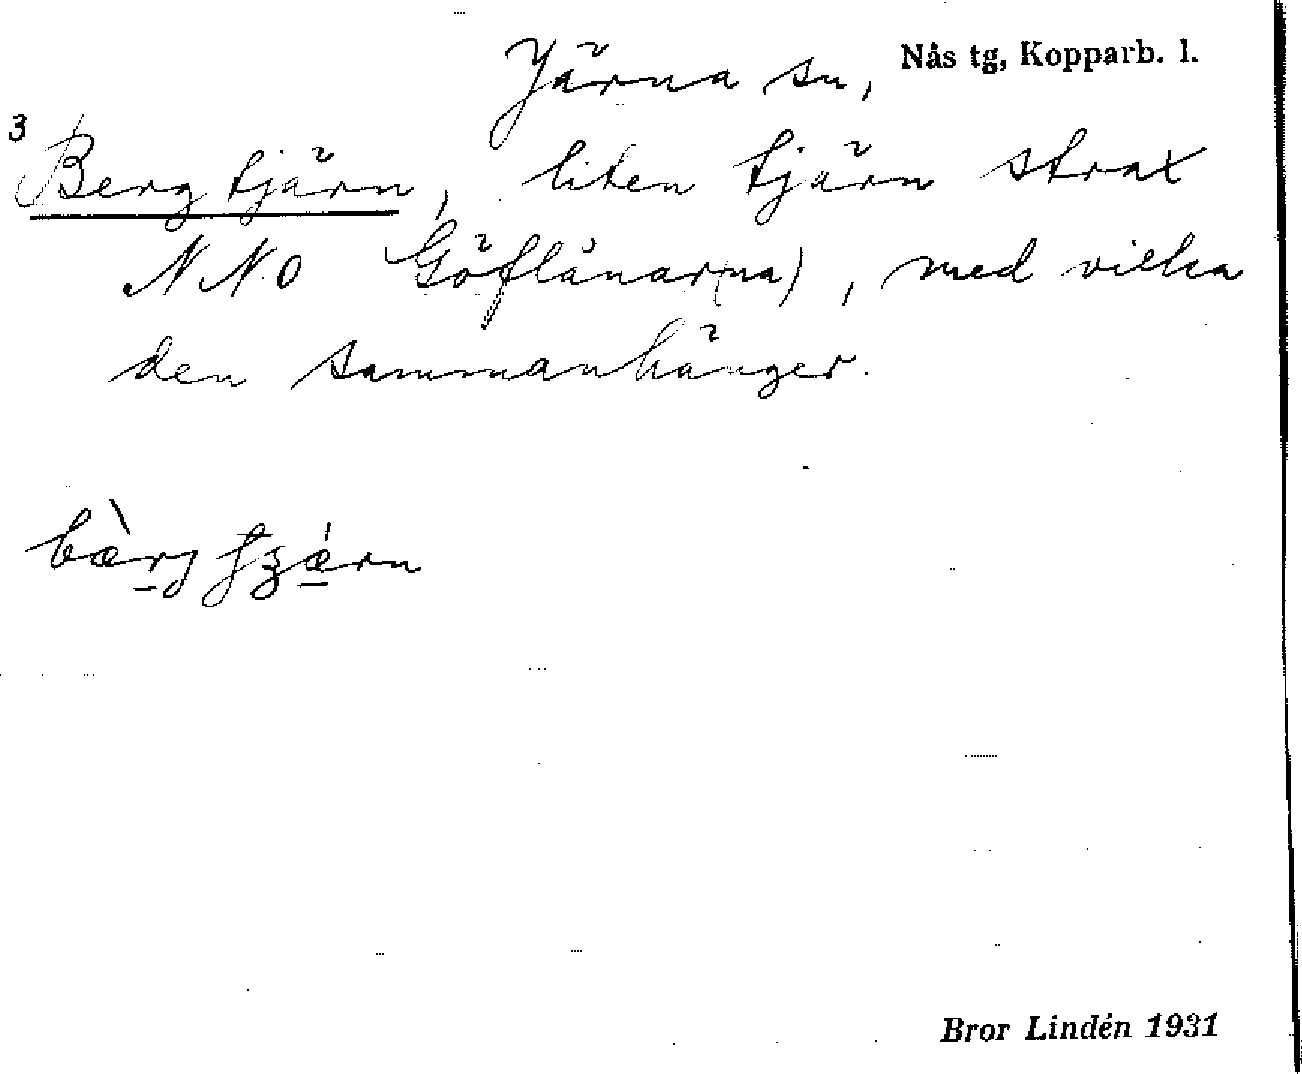 Järna sn, Nås tg, Kopparb. l.
3
Bergtjärn, liten tjärn strax
N.N.O Göflånar(na), med vilka
den sammanhänger.
Bror Lindén 1931